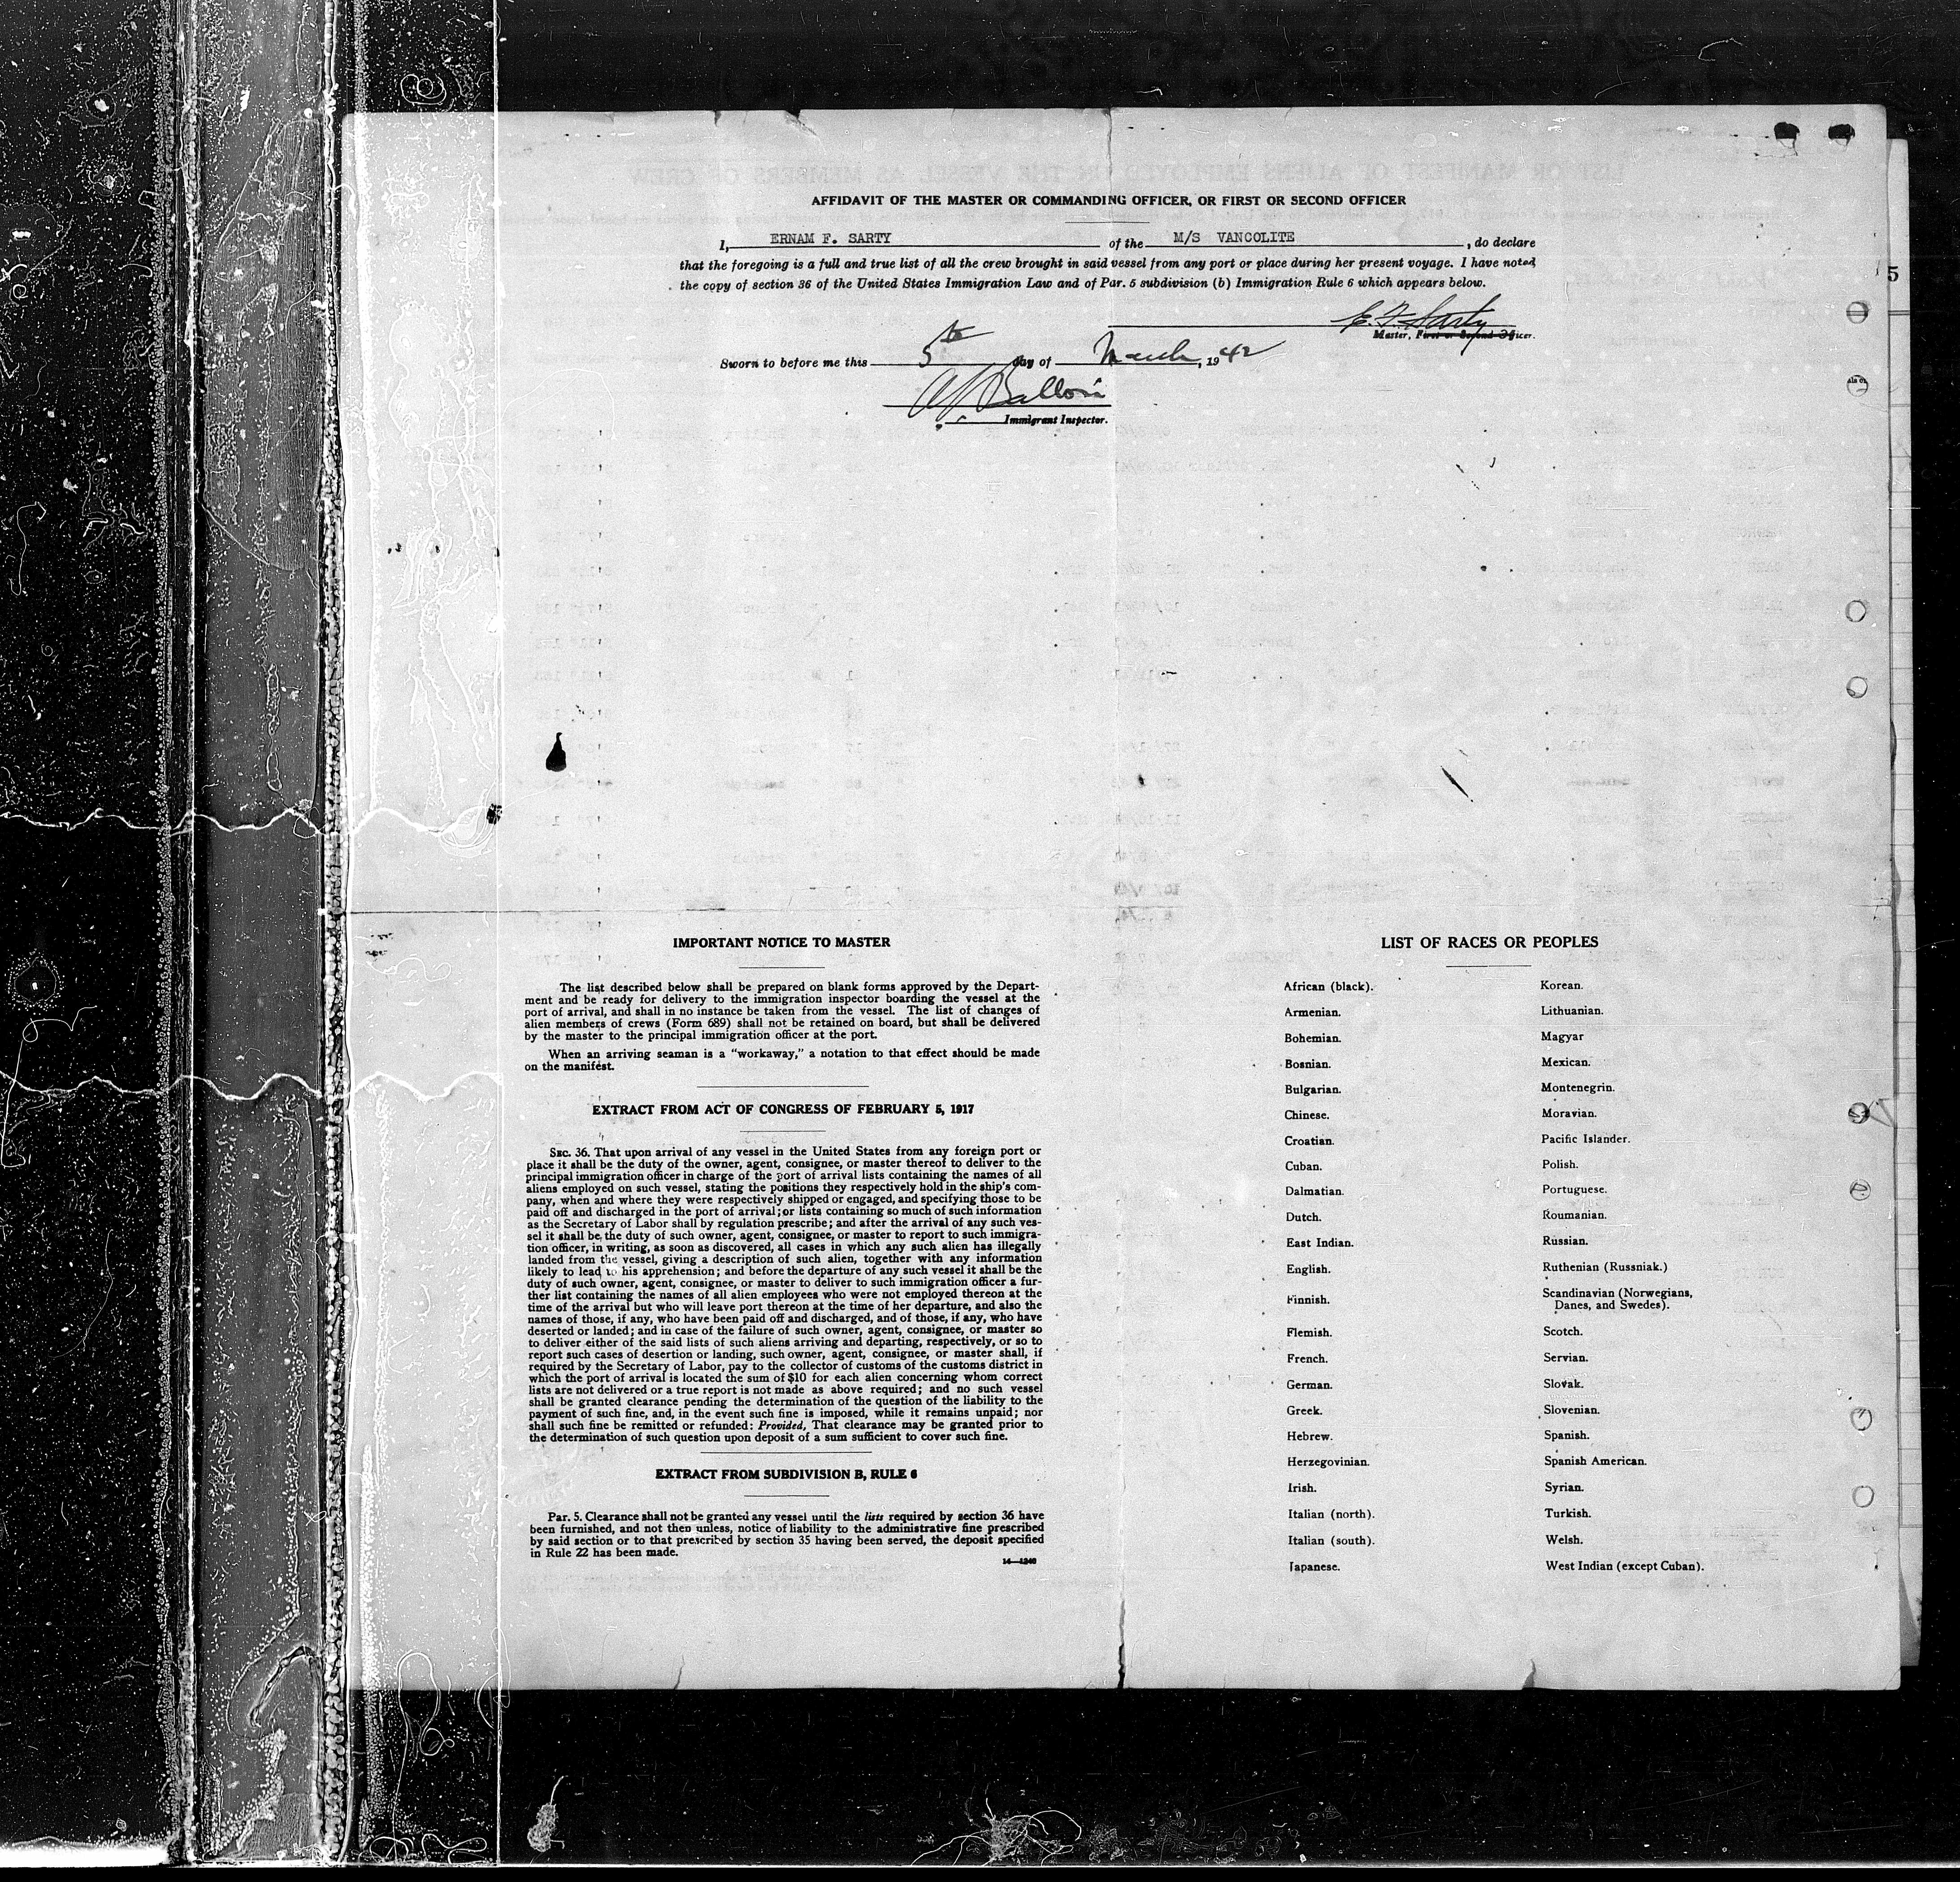 AFFIDAVIT OF THE MASTER OR COMMANDING OFFICER, OR FIRST OR SECOND OFFICER
I, ERNAM F. SARTY of the M/S VANCOLITE, do declare
that the foregoing is a full and true list of all the crew brought in said vessel from any port or place during her present voyage. I have noted
the copy of section 36 of the United States Immigration Law and of Par. 5 subdivision (b) Immigration Rule 6 which appears below.
E. F. Sarty
Master, First or Second Officer.
Sworn to before me this 5th day of March, 1942
Immigrant Inspector.
5
IMPORTANT NOTICE TO MASTER
The list described below shall be prepared on blank forms approved by the Depart-
ment and be ready for delivery to the immigration inspector boarding the vessel at the
port of arrival, and shall in no instance be taken from the vessel. The list of changes of
alien members of crews (Form 689) shall not be retained on board, but shall be delivered
by the master to the principal immigration officer at the port.
When an arriving seaman is a "workaway," a notation to that effect should be made
on the manifest.
EXTRACT FROM ACT OF CONGRESS OF FEBRUARY 5, 1917
SEC. 36. That upon arrival of any vessel in the United States from any foreign port or
place it shall be the duty of the owner, agent, consignee, or master thereof to deliver to the
principal immigration officer in charge of the port of arrival lists containing the names of all
aliens employed on such vessel, stating the positions they respectively hold in the ship's com-
pany, when and where they were respectively shipped or engaged, and specifying those to be
paid off and discharged in the port of arrival; or lists containing so much of such information
as the Secretary of Labor shall by regulation prescribe; and after the arrival of any such ves-
sel it shall be the duty of such owner, agent, consignee, or master to report to such immigra-
tion officer, in writing, as soon as discovered, all cases in which any such alien has illegally
landed from the vessel, giving a description of such alien, together with any information
likely to lead to his apprehension; and before the departure of any such vessel it shall be the
duty of such owner, agent, consignee, or master to deliver to such immigration officer a fur-
ther list containing the names of all alien employees who were not employed thereon at the
time of the arrival but who will leave port thereon at the time of her departure, and also the
names of those, if any, who have been paid off and discharged, and of those, if any, who have
deserted or landed; and in case of the failure of such owner, agent, consignee, or master so
to deliver either of the said lists of such aliens arriving and departing, respectively, or so to
report such cases of desertion or landing, such owner, agent, consignee, or master shall, if
required by the Secretary of Labor, pay to the collector of customs of the customs district in
which the port of arrival is located the sum of $10 for each alien concerning whom correct
lists are not delivered or a true report is not made as above required; and no such vessel
shall be granted clearance pending the determination of the question of the liability to the
payment of such fine, and, in the event such fine is imposed, while it remains unpaid; nor
shall such fine be remitted or refunded: Provided, That clearance may be granted prior to
the determination of such question upon deposit of a sum sufficient to cover such fine.
EXTRACT FROM SUBDIVISION B, RULE 6
Par. 5. Clearance shall not be granted any vessel until the lists required by section 36 have
been furnished, and not then unless, notice of liability to the administrative fine prescribed
by said section or to that prescribed by section 35 having been served, the deposit specified
in Rule 22 has been made.
14—1240
LIST OF RACES OR PEOPLES
African (black).
Armenian.
Bohemian.
Bosnian.
Bulgarian.
Chinese.
Croatian.
Cuban.
Dalmatian.
Dutch.
East Indian.
English.
Finnish.
Flemish.
French.
German.
Greek.
Hebrew.
Herzegovinian.
Irish.
Italian (north).
Italian (south).
Japanese.
Korean.
Lithuanian.
Magyar
Mexican.
Montenegrin.
Moravian.
Pacific Islander.
Polish.
Portuguese.
Roumanian.
Russian.
Ruthenian (Russniak.)
Scandinavian (Norwegians,
Danes, and Swedes).
Scotch.
Servian.
Slovak.
Slovenian.
Spanish.
Spanish American.
Syrian.
Turkish.
Welsh.
West Indian (except Cuban).